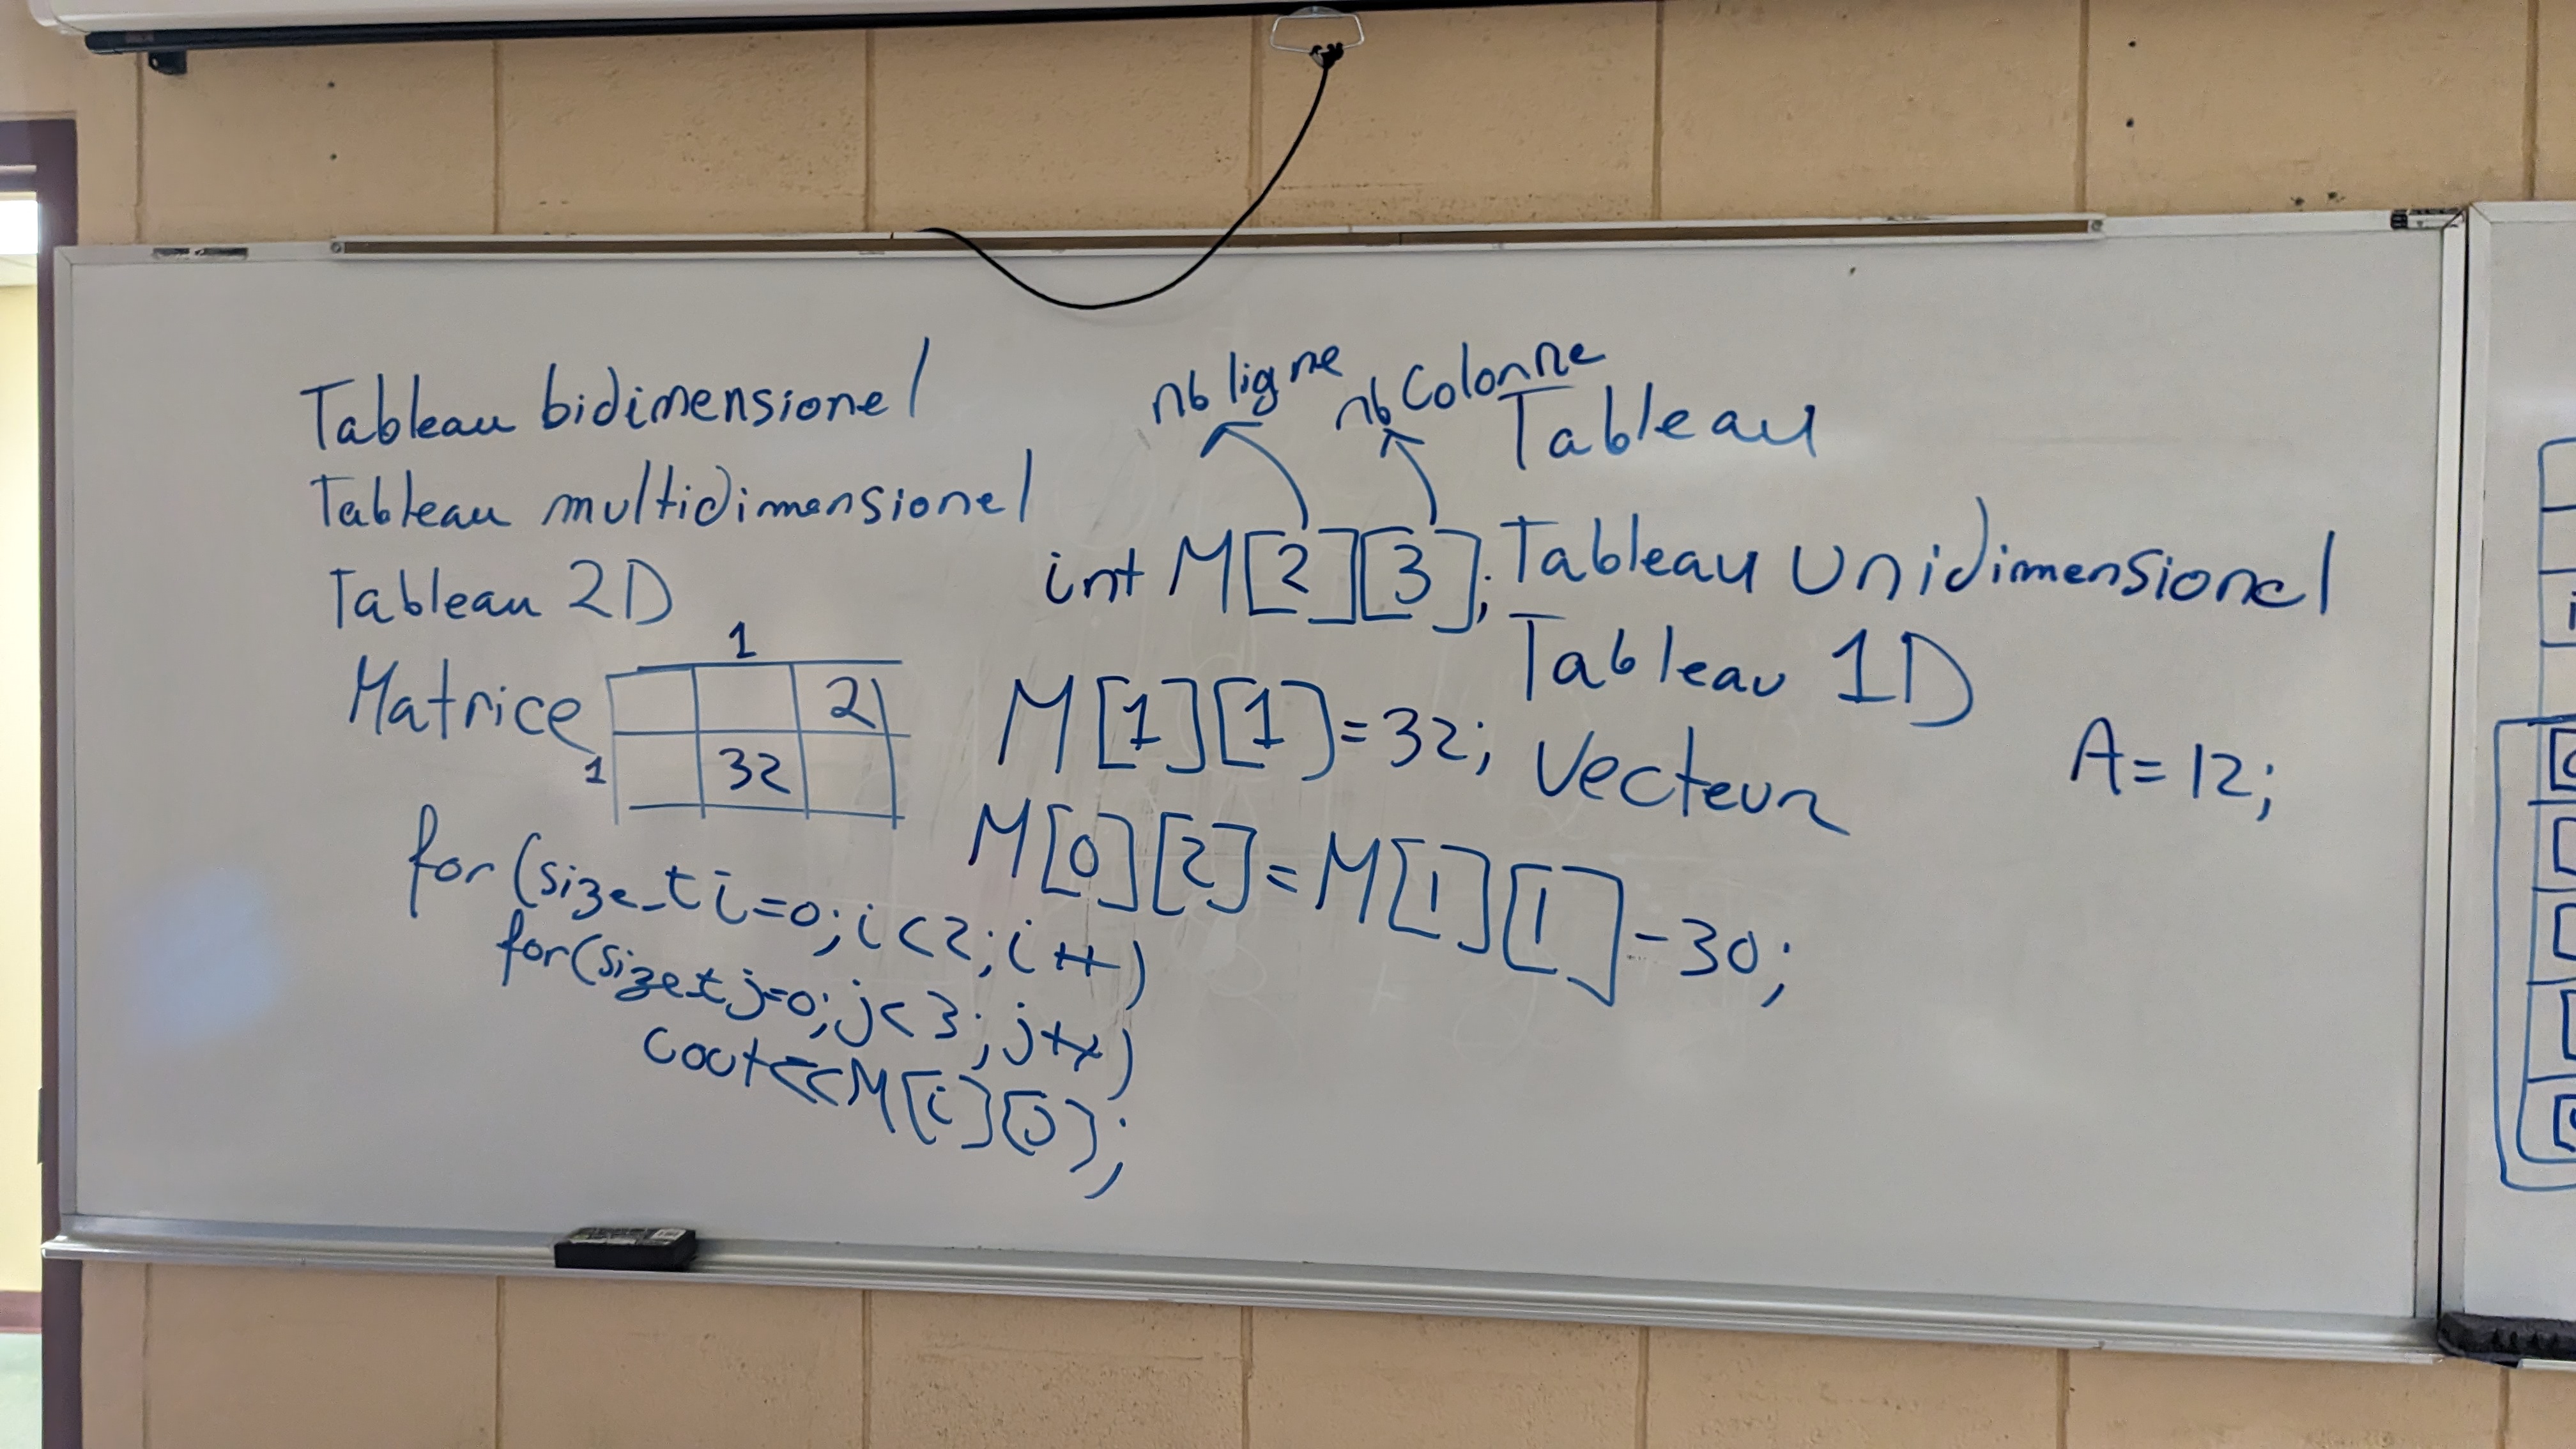 Tableau bidimensionel
Tableau multidimensionel
Tableau 2D
Matrice
1
2
1
32
for(size_t i=0;i<2;i++)
for(size_t j=0;j<3;j++)
cout<<M[i][j];
nb ligne
nb Colonne
int M[2][3];
M[1][1]=32;
M[0][2]=M[1][1]-30;
Tableau
Tableau Unidimensionel
Tableau 1D
Vecteur
A=12;